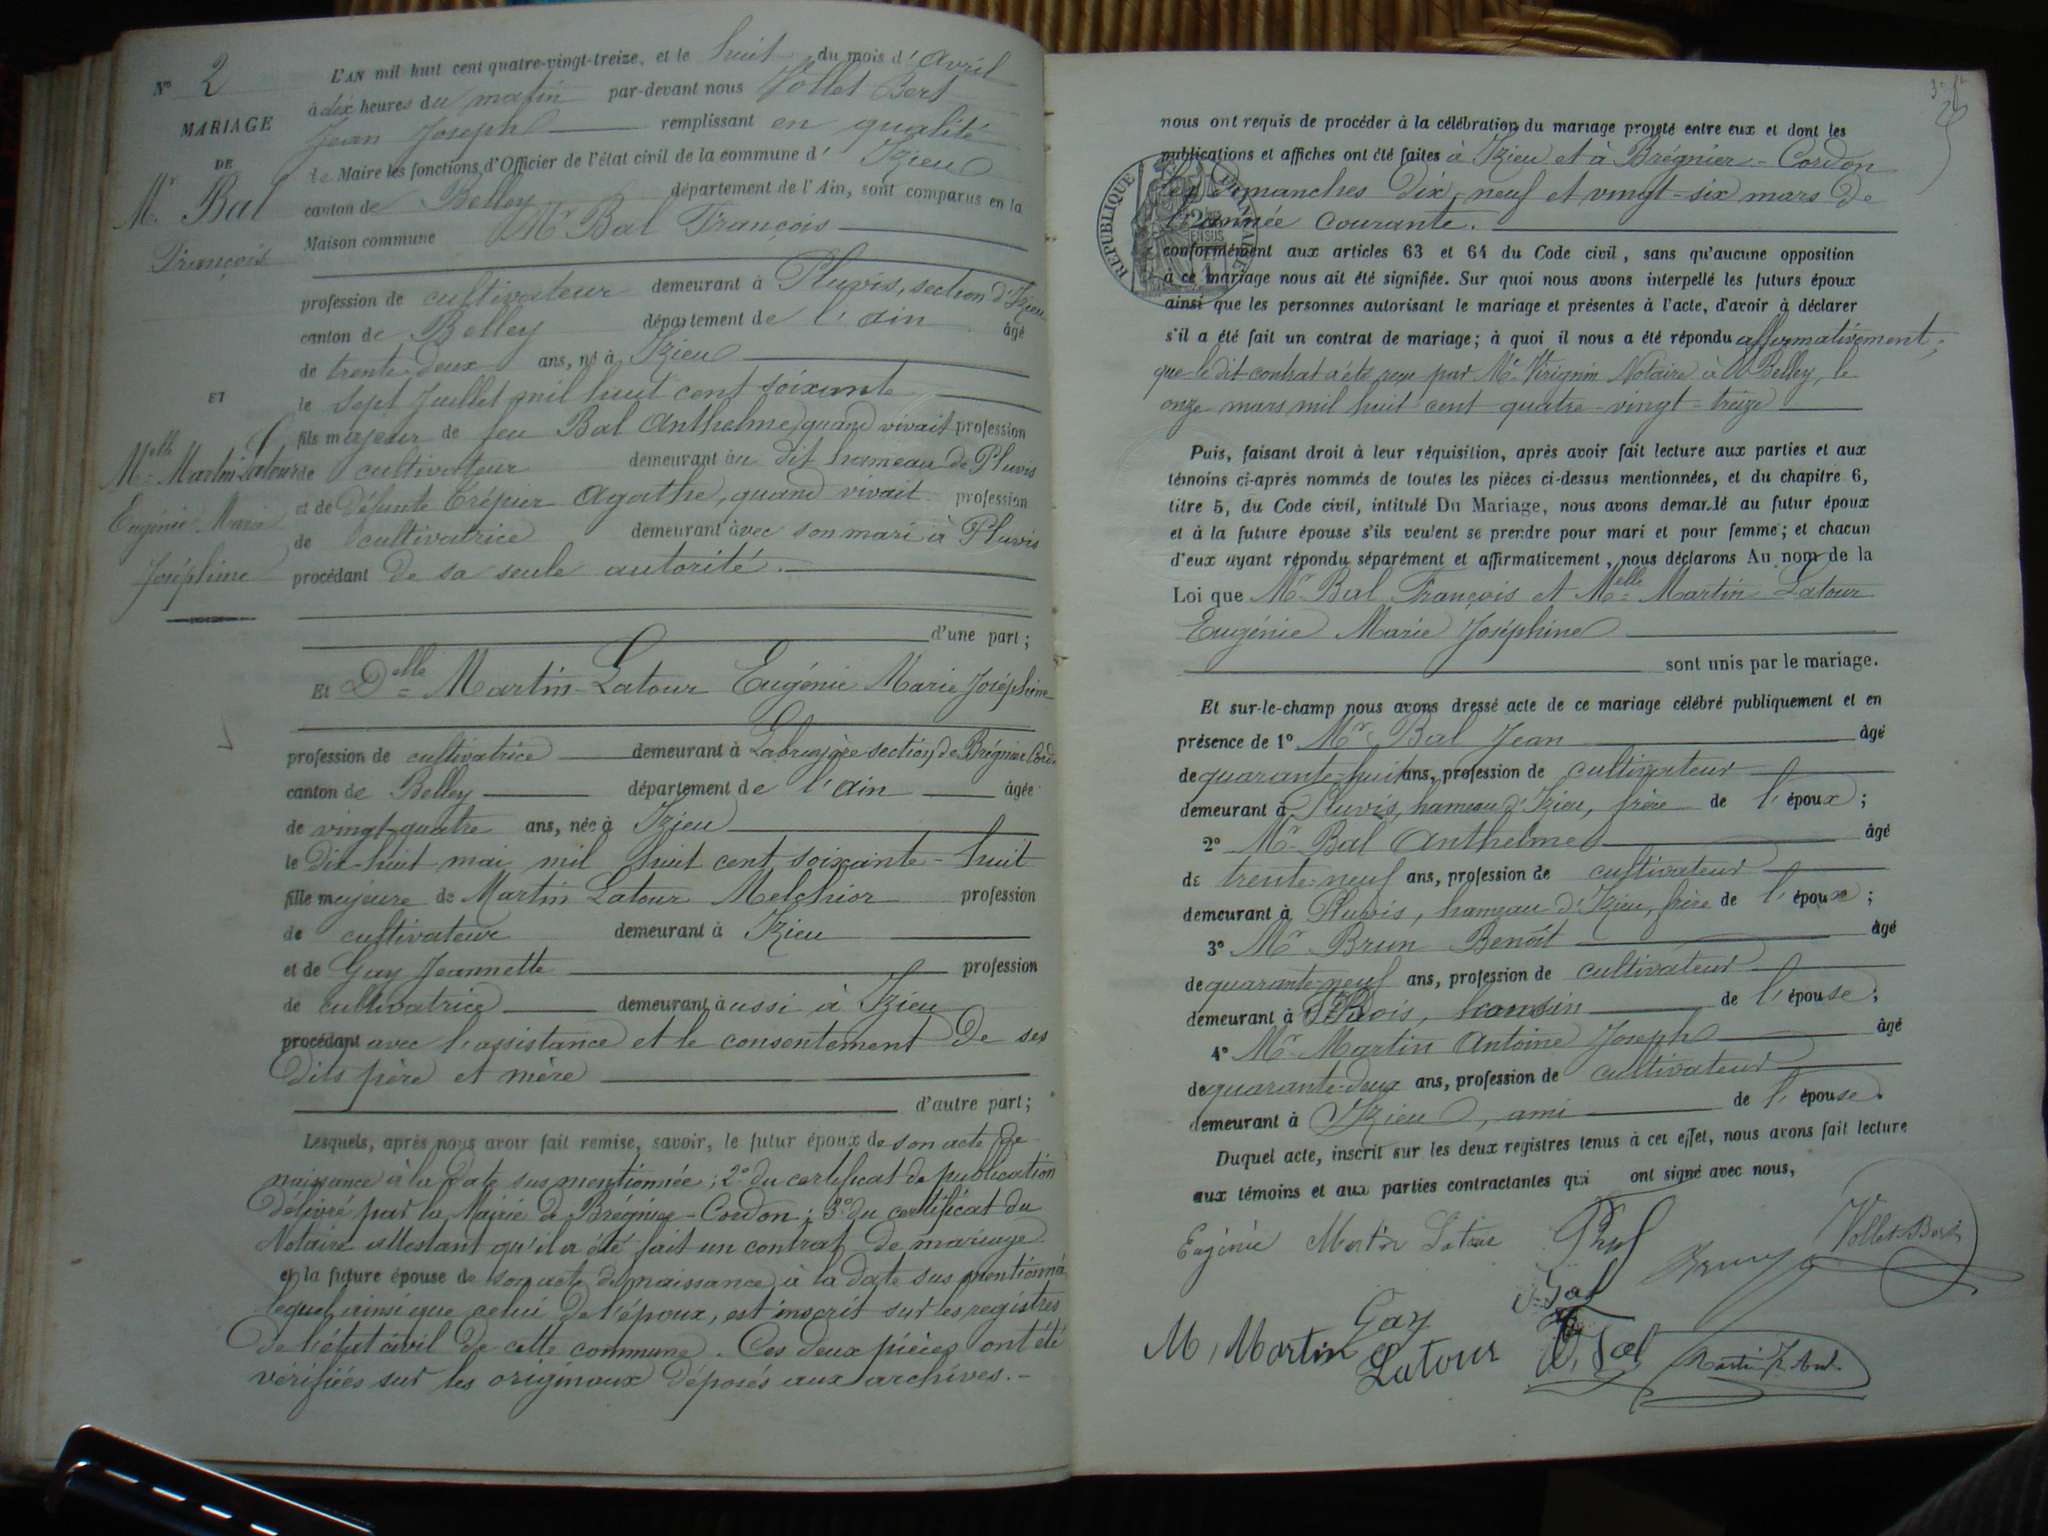 N° 2
MARIAGE
DE
Mr Bal
François
ET
Melle Martin-Latour
Eugénie Marie
Joséphine
L'AN mil huit cent quatre-vingt-treize, et le huit du mois d'Avril
à dix heures du matin par-devant nous Vollet Bert
Jean Joseph remplissant en qualité
de Maire les fonctions d'Officier de l'état civil de la commune d'Izieu
canton de Belley département de l'Ain, sont comparus en la
Maison commune Mr Bal François
profession de cultivateur demeurant à Pluvis, section d'Izieu
canton de Belley département de l'Ain âgé
de trente-deux ans, né à Izieu
le sept Juillet mil huit cent soixante
fils majeur de feu Bal Anthelme, quand vivait profession
de cultivateur demeurant au dit hameau de Pluvis
et de défunte Crépier Agathe, quand vivait profession
de cultivatrice demeurant avec son mari à Pluvis
procédant de sa seule autorité.
d'une part;
Et Delle Martin-Latour Eugénie Marie Joséphine
profession de cultivatrice demeurant à Labruyère section de Brégnier Cordon
canton de Belley département de l'Ain âgée
de vingt-quatre ans, née à Izieu
le dix-huit mai mil huit cent soixante-huit
fille majeure de Martin Latour Melchior profession
de cultivateur demeurant à Izieu
et de Gay Jeannette profession
de cultivatrice demeurant aussi à Izieu
procédant avec l'assistance et le consentement de ses
dits père et mère
d'autre part;
Lesquels, après nous avoir fait remise, savoir, le futur époux de son acte de
naissance à la date sus mentionnée; 2° du certificat de publication
délivré par la Mairie de Brégnier-Cordon; 3° du certificat du
Notaire attestant qu'il a été fait un contrat de mariage
et la future épouse de son acte de naissance à la date sus mentionné
lequel ainsi que celui de l'époux, est inscrit sur les registres
de l'état civil de cette commune. Ces deux pièces ont été
vérifiées sur les originaux déposés aux archives.-
nous ont requis de procéder à la célébration du mariage projeté entre eux et dont les
publications et affiches ont été faites à Izieu et à Brégnier-Cordon
les Dimanches dix-neuf et vingt-six mars de
l'année courante.
conformément aux articles 63 et 64 du Code civil, sans qu'aucune opposition
à ce mariage nous ait été signifiée. Sur quoi nous avons interpellé les futurs époux
ainsi que les personnes autorisant le mariage et présentes à l'acte, d'avoir à déclarer
s'il a été fait un contrat de mariage; à quoi il nous a été répondu affirmativement;
que le dit contrat a été reçu par Me Virignin Notaire à Belley, le
onze mars mil huit cent quatre-vingt-treize
Puis, faisant droit à leur réquisition, après avoir fait lecture aux parties et aux
témoins ci-après nommés de toutes les pièces ci-dessus mentionnées, et du chapitre 6,
titre 5, du Code civil, intitulé Du Mariage, nous avons demandé au futur époux
et à la future épouse s'ils veulent se prendre pour mari et pour femme; et chacun
d'eux ayant répondu séparément et affirmativement, nous déclarons Au nom de la
Loi que Mr Bal François et Melle Martin-Latour
Eugénie Marie Joséphine
sont unis par le mariage.
Et sur-le-champ nous avons dressé acte de ce mariage célébré publiquement et en
présence de 1° Mr Bal Jean âgé
de quarante-huit ans, profession de cultivateur
demeurant à Pluvis, hameau d'Izieu, frère de l'époux;
2° Mr Bal Anthelme âgé
de trente-neuf ans, profession de cultivateur
demeurant à Pluvis, hameau d'Izieu, frère de l'époux;
3° Mr Brun Benoît âgé
de quarante-neuf ans, profession de cultivateur
demeurant à cousin de l'épouse;
4° Mr Martin Antoine Joseph âgé
de quarante-deux ans, profession de cultivateur
demeurant à Izieu, ami de l'épouse.
Duquel acte, inscrit sur les deux registres tenus à cet effet, nous avons fait lecture
aux témoins et aux parties contractantes qui ont signé avec nous,
Eugénie Martin Latour
Vollet-Bert
Gay
M. Martin
Latour
RÉPUBLIQUE FRANÇAISE